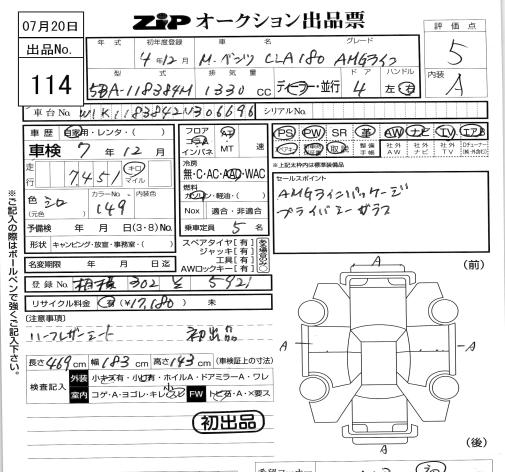 07月20日
出品No.
114
ZIP オークション出品票
評価点
5
内装
A
年式 初年度登録 車名 グレード
4年12月 M.ベンツ CLA180 AMGライン
型式 排気量 ドア ハンドル
5BA-118384M 1330 CC ディーラー・並行 4 左 右
車台No. W1K1183842N306696 シリアルNo.
車歴 自家用・レンタ・( )
車検 7年12月
走行 7451 キロ マイル
色 シロ (元色) カラーNo. 149 内装色
予備検 年 月 日 (3・8)No.
形状 キャンピング・放宣・事務室・( )
名変期限 年 月 日迄
登録No. 相模 302 5921
リサイクル料金 (¥17,180) 未
フロア コラム インパネ AT MT 速
冷房
無・C・AC・AAC・WAC
燃料
ガソリン・軽油・( )
Nox 適合・非適合
乗車定員 5名
スペアタイヤ[有]
ジャッキ[有]
工具[有]
AWロックキー[有]
PS PW SR 革 AW ナビ TV エアB
記録簿 取説 整備手帳 社外AW 社外ナビ 社外TV
※上記太枠内は標準装備品
セールスポイント
AMGラインパッケージ
プライバシーガラス
※ご記入の際はボールペンで強くご記入下さい。
(注意事項)
ハーフレザーシート 初出品
長さ469cm 幅183cm 高さ143cm (車検証上の寸法)
検査記入 外装 小キズ有・小ヒ有・ホイルA・ドアミラーA・ワレ
室内 コゲA・ヨゴレ・キレ FW トビ石A・×要ス
初出品
(前)
A
A
A
A
(後)